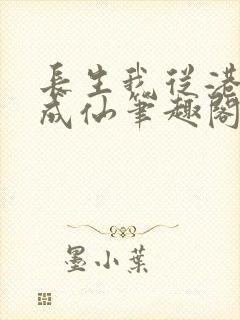 長生我從港
成仙筆趣閣
墨小葉